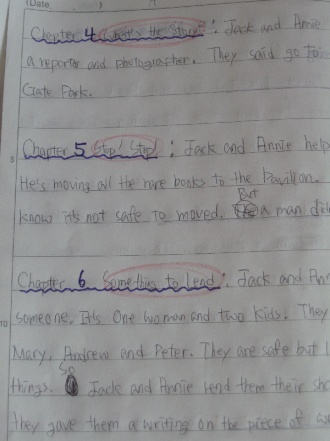 (Date
Chapter 4 What's the Story? : Jack and Annie
a reporter and photographer. They said go to
Gate Park.
Chapter 5 Stop! Stop! : Jack and Annie help
He's moving all the rare books to the Pavilion.
But
know it's not safe to moved. a man did
Chapter 6 Something to Lend : Jack and Ann
someone. It's One woman and two kids. They
Mary, Andrew and Peter. They are safe but l
So
things. Jack and Annie lend them their sh
they gave them a writing on the piece of w
10